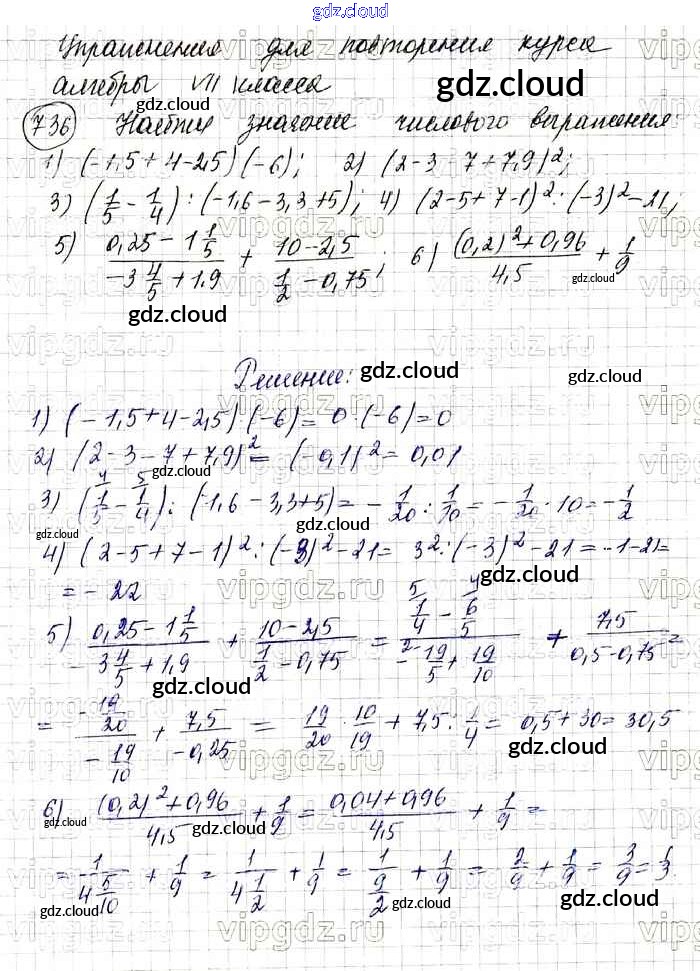 gdz.cloud
Упражнения для повторения курса
алгебры VII класса
gdz.cloud
736 Найти значение числового выражения:
1) (-1,5+4-2,5)(-6); 2) (2-3-7+7,9)²;
3) (1/5 - 1/4) : (-1,6-3,3+5); 4) (2-5+7-1)² : (-3)² - 21;
5) (0,25 - 1 1/5)/(-3 4/5 + 1,9) + (10-2,5)/(1/2 - 0,75); 6) ((0,2)² + 0,96)/4,5 + 1/9
gdz.cloud
Решение:
gdz.cloud
1) (-1,5+4-2,5)(-6) = 0·(-6) = 0
2) (2-3-7+7,9)² = (-0,1)² = 0,01
3) (1/5 - 1/4) : (-1,6-3,3+5) = -1/20 : 1/10 = -1/20 · 10 = -1/2
gdz.cloud
4) (2-5+7-1)² : (-3)² - 21 = 3² : (-3)² - 21 = -1-21=
= -22
gdz.cloud
5) (0,25 - 1 1/5)/(-3 4/5 + 1,9) + (10-2,5)/(1/2 - 0,75) = (1/4 - 6/5)/(-19/5 + 19/10) + 7,5/(0,5-0,75) =
gdz.cloud
= (-19/20)/(-19/10) + 7,5/(-0,25) = 19/20 · 10/19 + 7,5 : 1/4 = 0,5+30=30,5
gdz.cloud
6) ((0,2)²+0,96)/4,5 + 1/9 = (0,04+0,96)/4,5 + 1/9 =
gdz.cloud
= 1/(4 5/10) + 1/9 = 1/(4 1/2) + 1/9 = 1/(9/2) + 1/9 = 2/9 + 1/9 = 3/9 = 1/3.
gdz.cloud